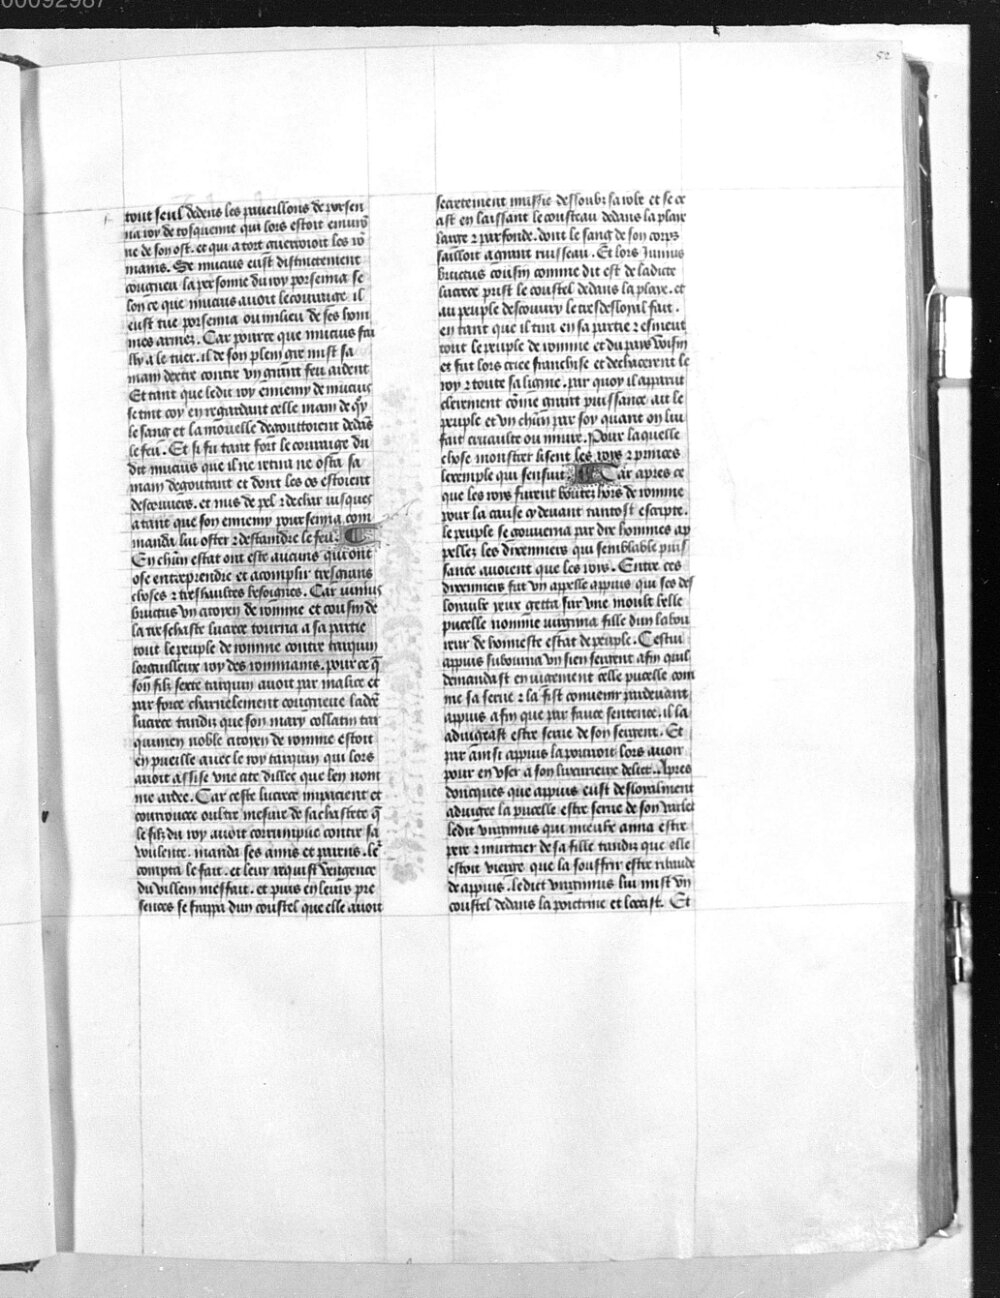 00092987
52
tout seul dedens les paveillons de porsen
na roy de tosquenne qui lors estoit enuiro
ne de son ost. et qui a tort guerroioit les ro
mains. Se mucius eust distinctement
congneu la personne du roy porsenna se
lon ce que mucius auoit le courage il
eust tue porsenna ou milieu de ses hom
mes armez. Car pource que mucius fai
lly a le tuer. il de son plein gre mist sa
main dextre contre vn grant feu ardent
Et tant que ledit roy ennemy de mucius
se tint coy en regardant celle main de q̄y
le sang et la mouelle degouttoient dedēs
le feu. Et si fu tant fort le courage du
dit mucius que il ne retira ne osta sa
main degoutant et dont les os estoient
descouuers. et nus de pel ⁊ de char iusques
a tant que son ennemy pourcenna com
manda lui oster ⁊ destaindre le feu.
En chūn estat ont este aucuns qui ont
ose entreprendre et acomplir tresgrans
choses ⁊ treshaultes besoignes. Car iunius
brutus vn citoyen de romme et cousin de
la treschaste lucrece tourna a sa partie
tout le peuple de romme contre tarquin
lorguilleux roy des rommains. pource q̄
son filz sexte tarquin auoit par malice et
par force charnelement congneue ladcē
lucrece tandiz que son mary collatin tar
quinien noble citoyen de romme estoit
en pueille auec le roy tarquin qui lors
auoit assise vne cite dillec que len nom
me ardee. Car ceste lucrece impacient et
courroucee oultre mesure de sa chastete q̄
le filz du roy auoit corrumpue contre sa
voulente. manda ses amis et parens. le²
compta le fait. et leur requist vengence
du villein meffait. et puis en leurs pre
sences se frappa dun coustel que elle auoit
secretement mussie dessoubz sa robe et se oc
cist en laissant le cousteau dedans la plaie
large ⁊ parfonde. dont le sang de son corps
sailloit a grant ruisseau. Et lors Junius
brutus cousin comme dit est de ladicte
lucrece prist le coustel dedans la playe. et
au peuple descouury le tresdesloyal fait.
en tant que il tira en sa partie ⁊ esmeut
tout le peuple de romme et du pais voisin
et fut lors criee franchise et dechacerent le
roy ⁊ toute sa ligne. par quoy il apparut
clerement cōme grant puissance ait le
peuple et vn chūn par soy quant on lui
fait cruaulte ou iniure. Pour laquelle
chose monstrer lisent les roys ⁊ princes
lexemple qui sensuit. Car apres ce
que les roys furent boutez hors de romme
pour la cause cy deuant tantost escripte.
le peuple se gouuerna par dix hommes ap
pellez les dixenniers qui semblable puis
sance auoient que les roys. Entre ces
dixenniers fut vn appelle appius qui ses des
loniaulx yeux getta sur vne moult belle
pucelle nommee virginia fille dun labou
reur de honneste estat de peuple. Cestui
appius subourna vn sien sergent afin quil
demandast en iugement celle pucelle com
me sa serue ⁊ la fist conuenir pardeuant
appius afin que par faulce sentence. il la
adiugeast estre serue de son sergent. Et
par ainsi appius la pourroit lors auoir
pour en vser a son luxurieux delict. Apres
doncques que appius eust desloyalment
adiugee la pucelle estre serue de son varlet
ledit virginius qui mieulx ama estre
pere ⁊ murtrier de sa fille tandiz que elle
estoit vierge que la souffrir estre ribaude
de appius. ledict virginius lui mist vn
coustel dedans la poictrine et loccist. Et